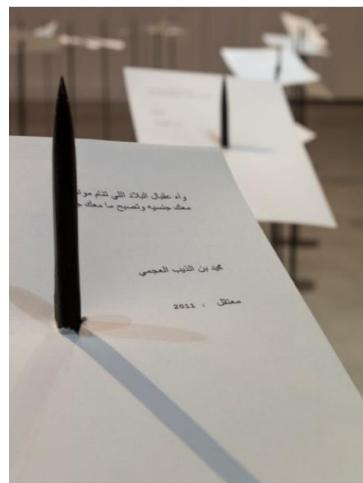 وآه عقبال البلاد اللي تنام
معك جنسيه وتصبح ما معك
محمد بن الذيب العجمي
معتقل ، 2011